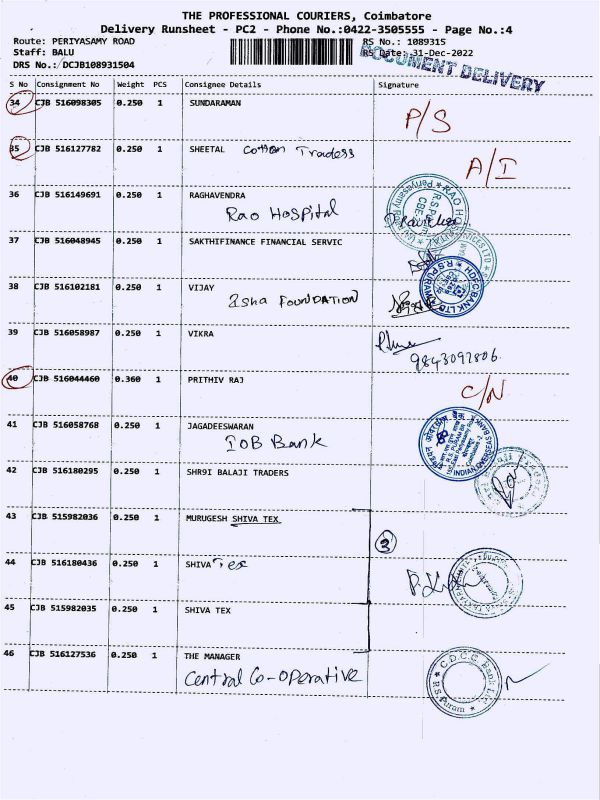 THE PROFESSIONAL COURIERS, Coimbatore
Delivery Runsheet - PC2 - Phone No.:0422-3505555 - Page No.:4
Route: PERIYASAMY ROAD RS No.: 1089315
Staff: BALU RS Date: 31-Dec-2022
DRS No.: DCJB108931504
DOCUMENT DELIVERY
S No Consignment No Weight PCS Consignee Details Signature
34 CJB 516098305 0.250 1 SUNDARAMAN
P/S
35 CJB 516127782 0.250 1 SHEETAL Cotton Tradess
A/I
36 CJB 516149691 0.250 1 RAGHAVENDRA
Rao Hospital
RAO HOSPITAL
37 CJB 516048945 0.250 1 SAKTHIFINANCE FINANCIAL SERVIC
38 CJB 516102181 0.250 1 VIJAY
Isha FOUNDATION
HDFC BANK LTD
R.S.PURAM
39 CJB 516058987 0.250 1 VIKRA
9843092806.
40 CJB 516044460 0.360 1 PRITHIV RAJ
C/N
41 CJB 516058768 0.250 1 JAGADEESWARAN
IOB Bank
INDIAN OVERSEAS BANK
42 CJB 516180295 0.250 1 SHR9I BALAJI TRADERS
43 CJB 515982036 0.250 1 MURUGESH SHIVA TEX
3
44 CJB 516180436 0.250 1 SHIVA Tex
45 CJB 515982035 0.250 1 SHIVA TEX
46 CJB 516127536 0.250 1 THE MANAGER
Central Co-operative
C.D.C.C. Bank Ltd.
R.S. Puram